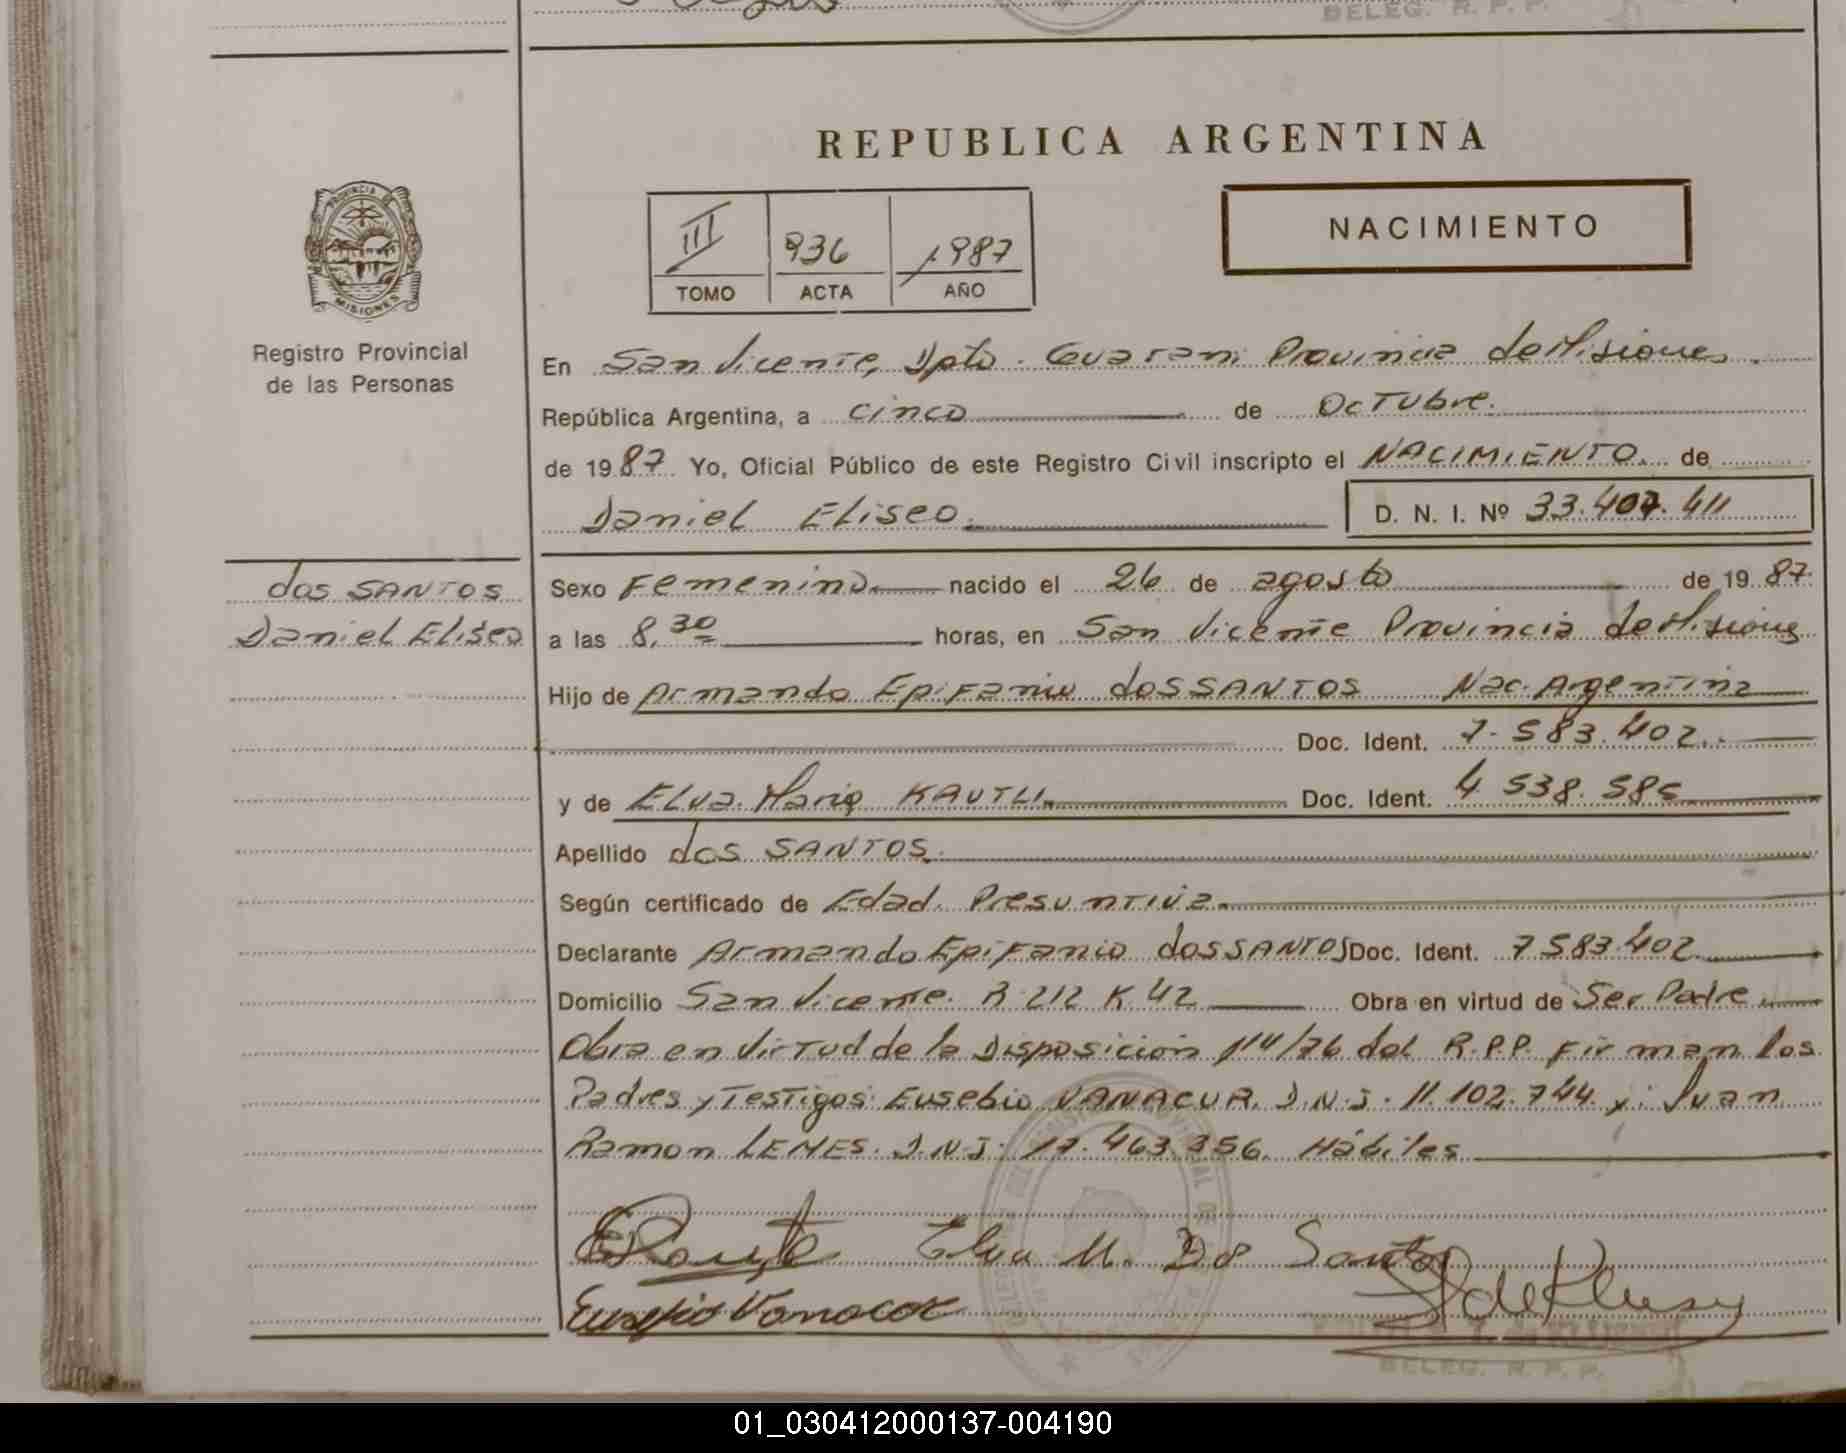 BELEG. R. P. P.
REPUBLICA ARGENTINA
NACIMIENTO
III 936 1987
TOMO ACTA AÑO
PROVINCIA DE MISIONES
Registro Provincial
de las Personas
En San Vicente, Dpto. Guarani Provincia de Misiones.
República Argentina, a cinco de Octubre.
de 1987. Yo, Oficial Público de este Registro Civil inscripto el NACIMIENTO. de
Daniel Eliseo. D. N. I. Nº 33.407.411
dos SANTOS
Daniel Eliseo
Sexo Femenino nacido el 26 de agosto de 1987.
a las 8,30 horas, en San Vicente Provincia de Misiones
Hijo de Armando Epifanio dos SANTOS Nac. Argentina
Doc. Ident. 7.583.402.
y de Elva Maria KAUTLI. Doc. Ident. 4.538.585
Apellido dos SANTOS.
Según certificado de Edad. Presuntiva.
Declarante Armando Epifanio dos SANTOS Doc. Ident. 7583.402
Domicilio San Vicente. R 212 K 42 Obra en virtud de Ser Padre
Obra en virtud de la Disposición 114/76 del R.P.P. Firman los
Padres y Testigos: Eusebio VANACUR. D.N.I. 11.102.744 y: Juan
Ramon LEMES. D.N.I: 17.463.356. Hábiles
Elva M. Do Santos
Eusebio Vanacor
BELEG. R. P. P.
01_030412000137-004190